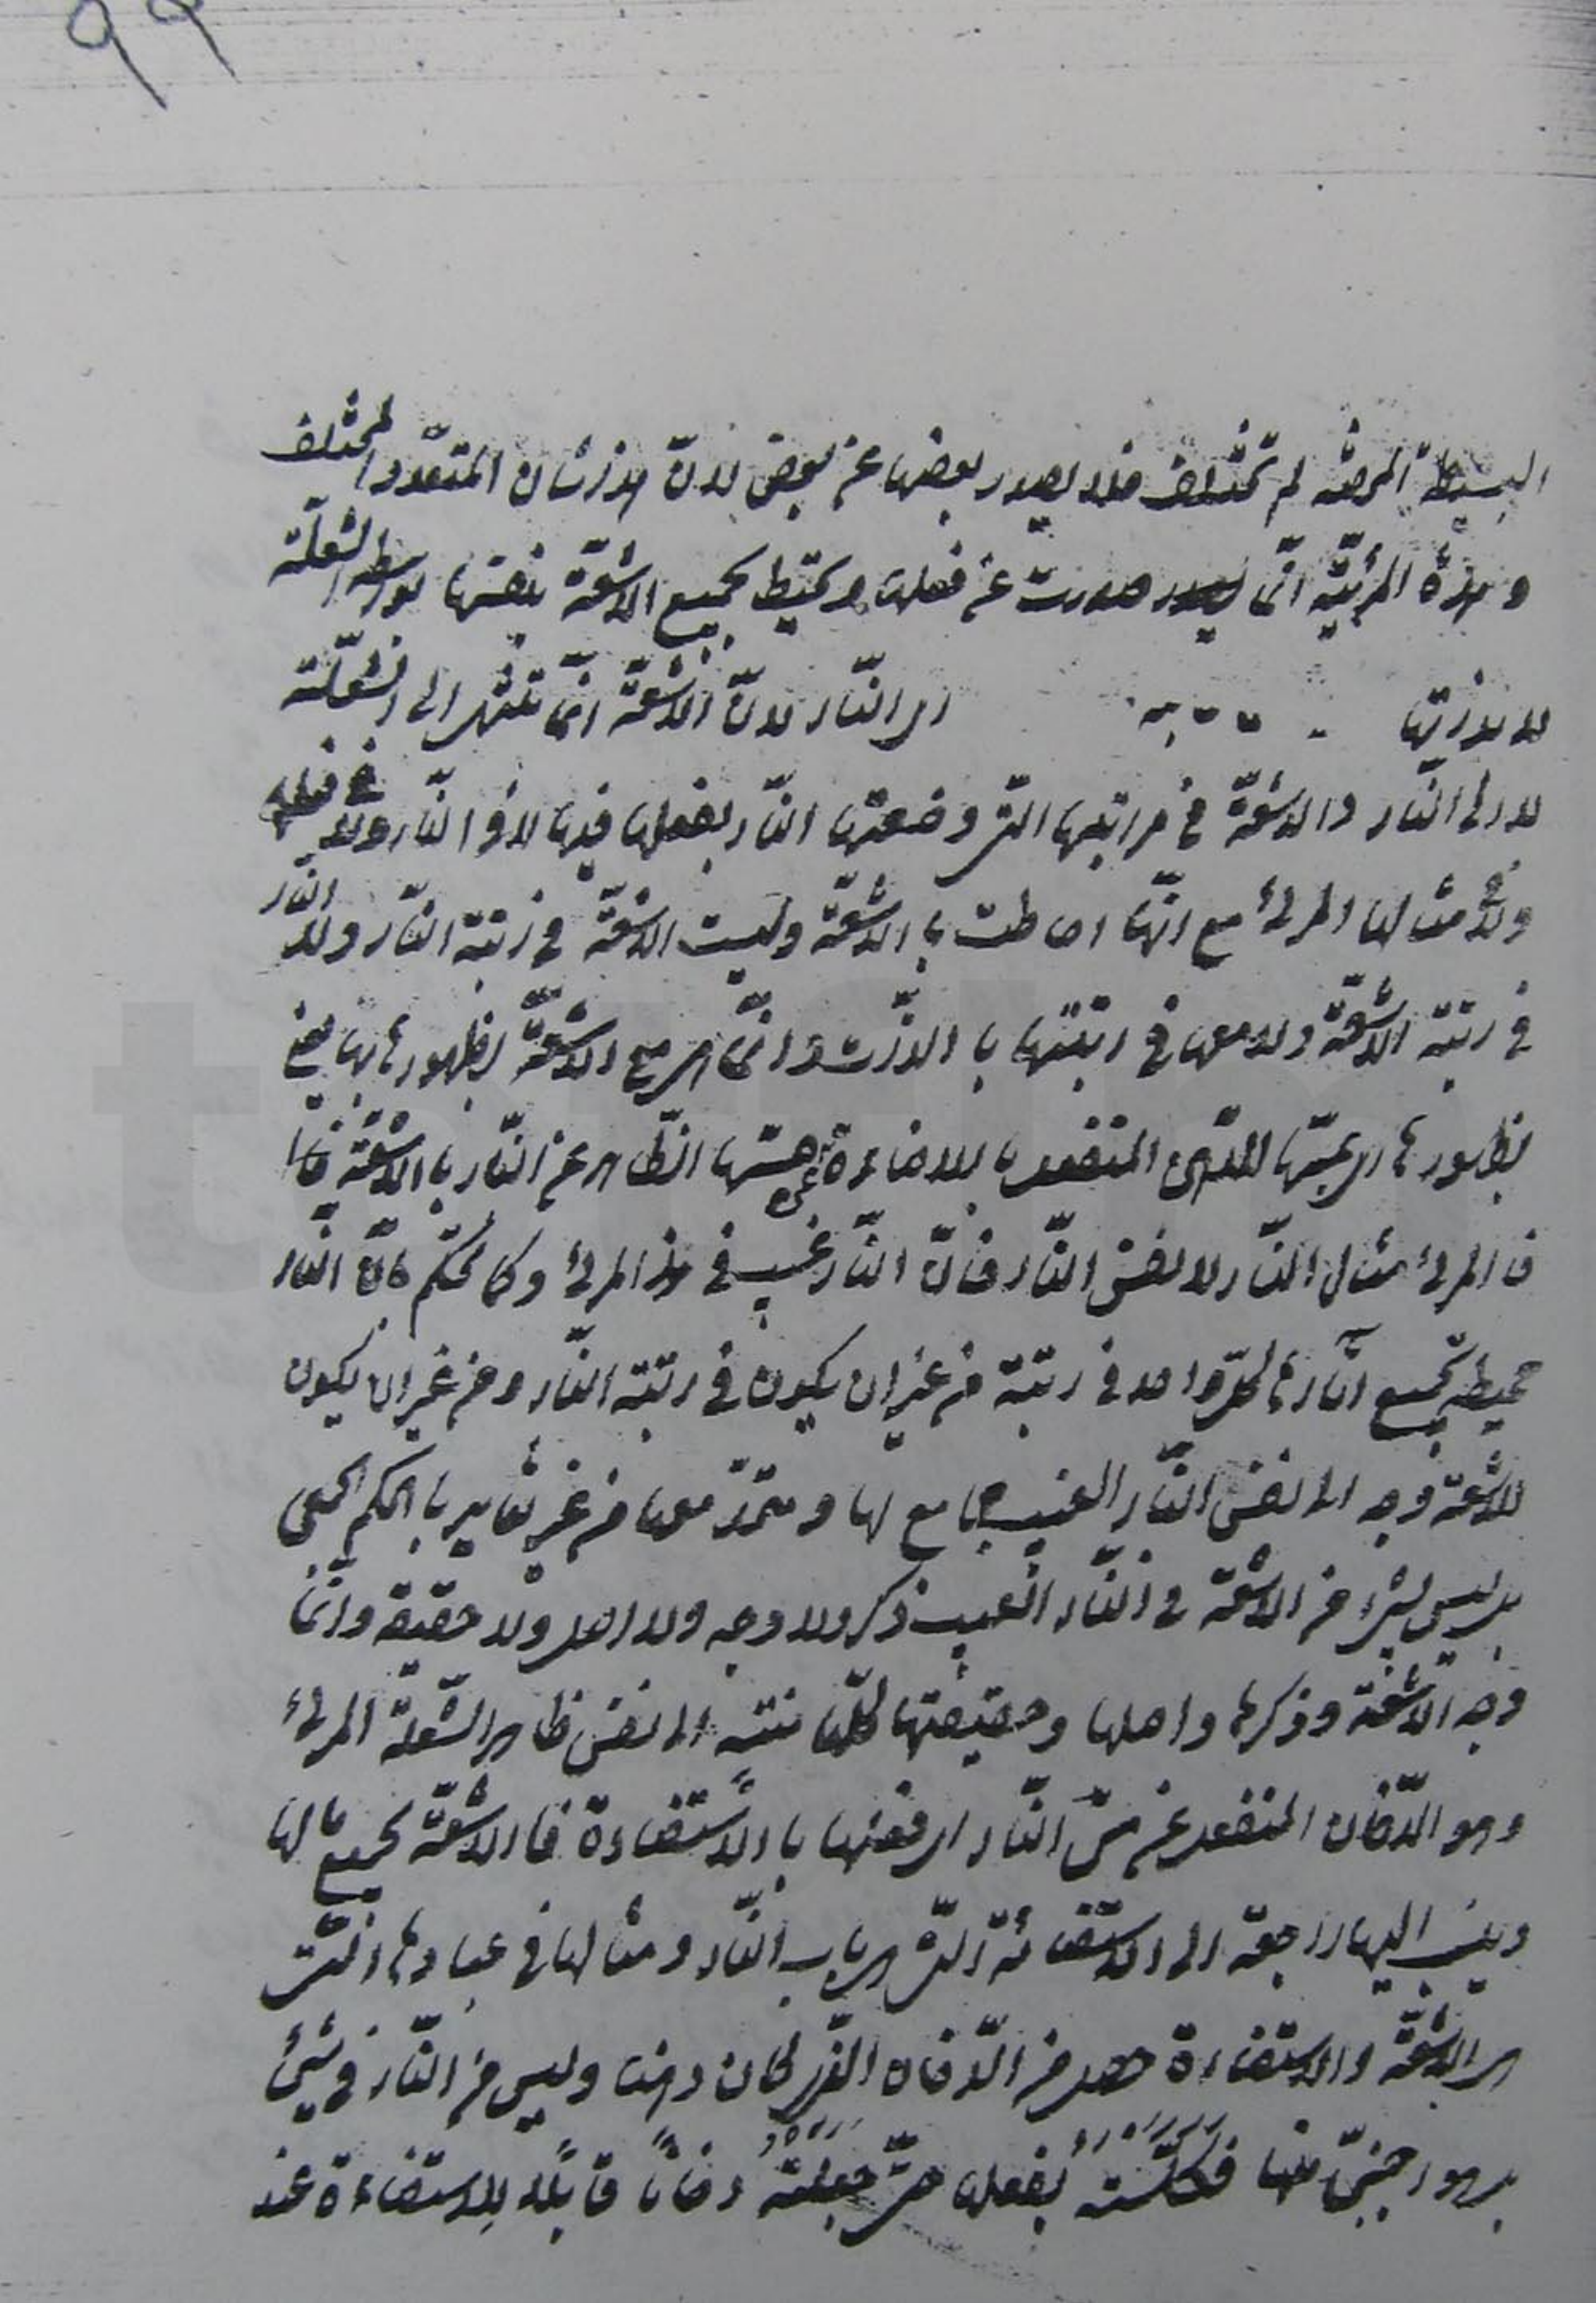 ٩٩
البسيطة لم تختلف فلا يصدر بعضها عن بعض لانّ هذا شان المتعدّد المختلف
وهذه المرئيّة انّما صدرت عن فعلها وتحيط بجميع الاشعّة بنفسها بواسطة الشعلة
لا بذاتها اى النّار لانّ الاشعّة انّما تنتهى الى الشعلة
لا الى النّار والاشعّة فى مراتبها الّتى وضعتها النّار بفعلها فيها لا فى النّار ولا فى فعلها
ولا فى مثالها المرئى مع انّها احاطت بالاشعّة وليست الاشعّة فى رتبة النّار ولا النّار
فى رتبة الاشعّة ولا معها فى رتبتها بالذّات وانّما هى مع الاشعّة بظهورها بها
بظهورها المنفعل بالاضاءة عن مسّها الظّاهر عن النّار بالاشعّة
فالمرئى مثال النّار لا نفس النّار فانّ النّار غيب فى هذا المرئى وكما تحكم بانّ النّار
محيطة بجميع آثارها كلّ واحد فى رتبة من غير ان يكون فى رتبة النّار ومن غير ان يكون
للاشعّة وجه الى نفس النّار الغيب جامع لها ومتّحد معها من غير تغاير بالحكم الجمعى
بل ليس لشىء من الاشعّة فى النّار الغيب ذكر ولا وجه ولا اصل ولا حقيقة وانّما
وجه الاشعّة وذكرها واصلها وحقيقتها كلّها تنتهى الى نفس ظاهر الشّعلة المرئى
وهو الدّخان المنفعل عن مسّ النّار اى فعلها بالاستضاءة فالاشعّة بجميع ما لها
وينسب اليها راجعة الى الاستضائة الّتى هى باب النّار ومثالها فى عبادها الّتى
هى الاشعّة والاستضاءة حصل من الدّخان الّذى كان دهنا وليس من النّار فى شىء
بل هو اجنبىّ منها فكلّسته بفعلها حتّى جعلته دخاناً قابلاً للاستضاءة عند